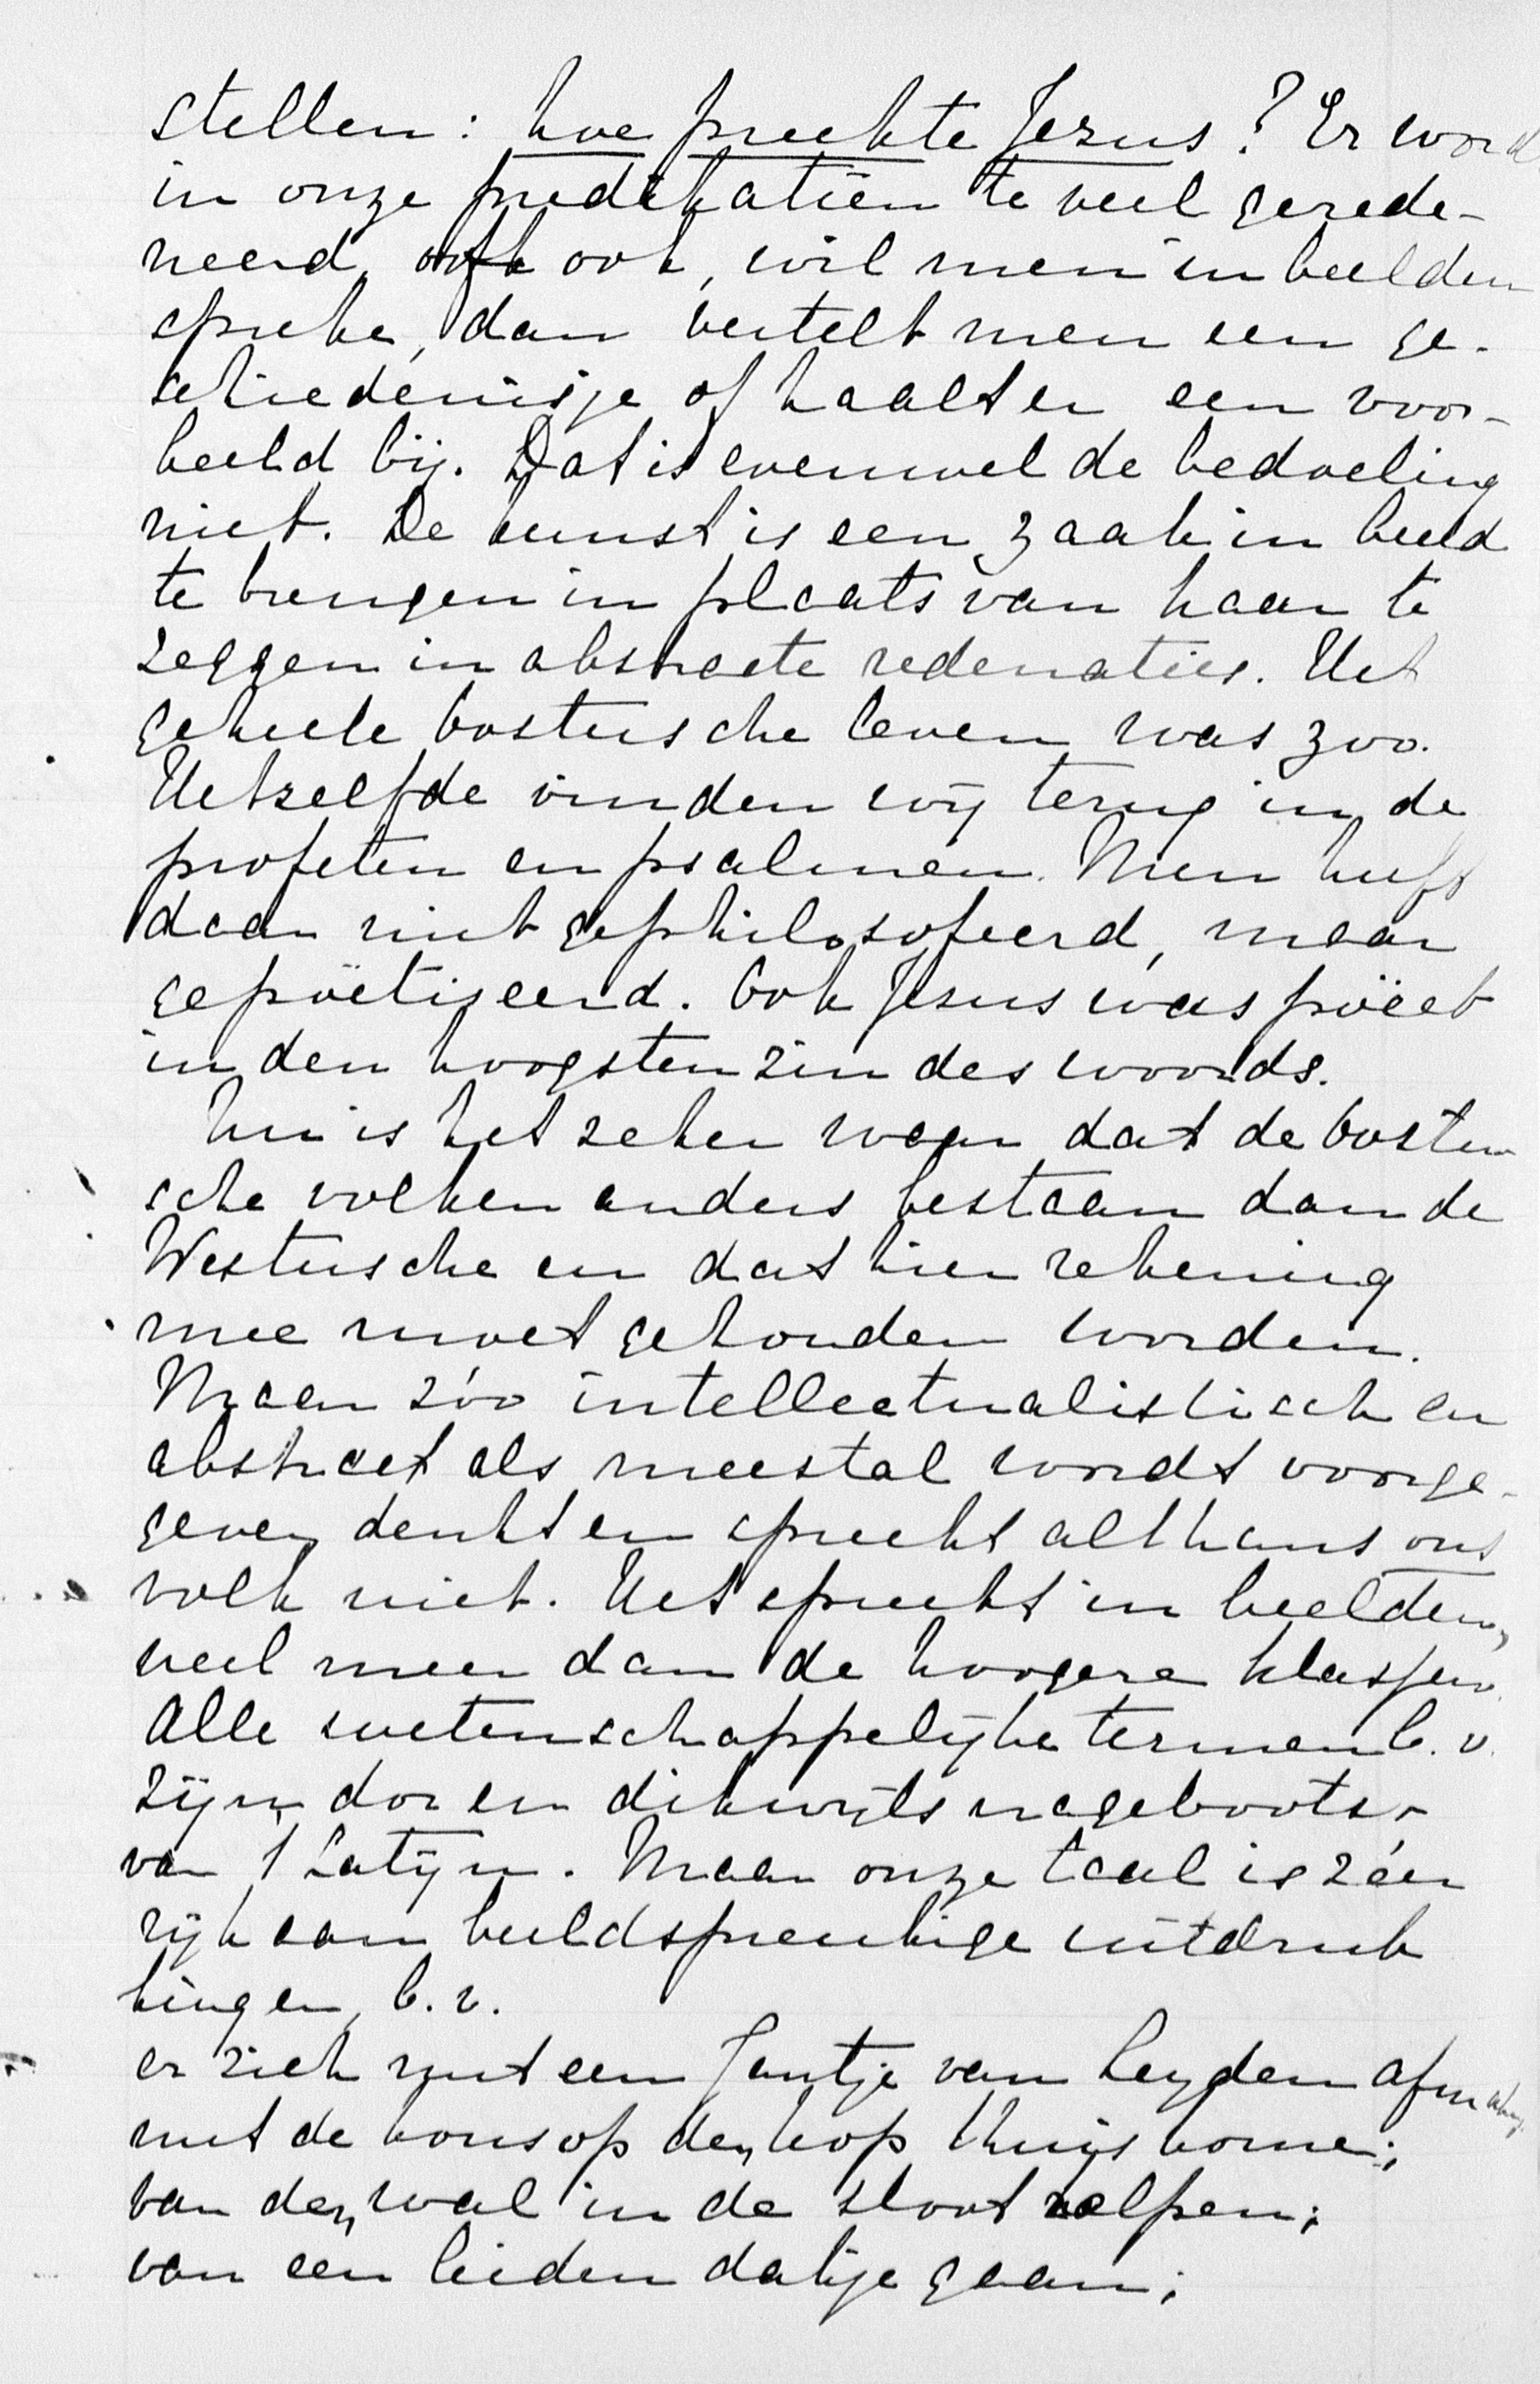 stellen: hoe preekte Jezus? Er word
in onze predikatiën te veel gerede-
neerd, ook, wil men in beelden
spreke, dan vertelt men een ge-
schiedenisje of haalt er een voor-
beeld bij. Dat is evenwel de bedoeling
niet. De kunst is een zaak in beeld
te brengen in plaats van haar te
zeggen in abstracte redenaties. Het
geheele Oostersche leven was zoo.
Hetzelfde vinden wij terug in de
profeten en psalmen. Men heeft
daar niet gephilosofeerd, maar
gepoëtiseerd. Ook Jesus was poëet
in den hoogsten zin des woords.
Nu is het zeker waar dat de Ooster
sche volken anders bestaan dan de
Westersche en dat hier rekening
mee moet gehouden worden.
Maar zóo intellectualistisch en
abstract als meestal wordt voorge-
geven denkt en spreekt althans ons
volk niet. Het spreekt in beelden,
veel meer dan de hoogere klassen.
Alle wetenschappelijke termen b.v.
zijn dor en dikwijls nageboots
van 't Latijn. Maar onze taal is zéer
rijk aan beeldspreukige uitdruk
kingen, b.v.
er zich met een Jantje van Leyden afmaken;
met de kous op den kop thuis kome;
van den wal in de sloot helpen;
van een leiden dakje gaan;